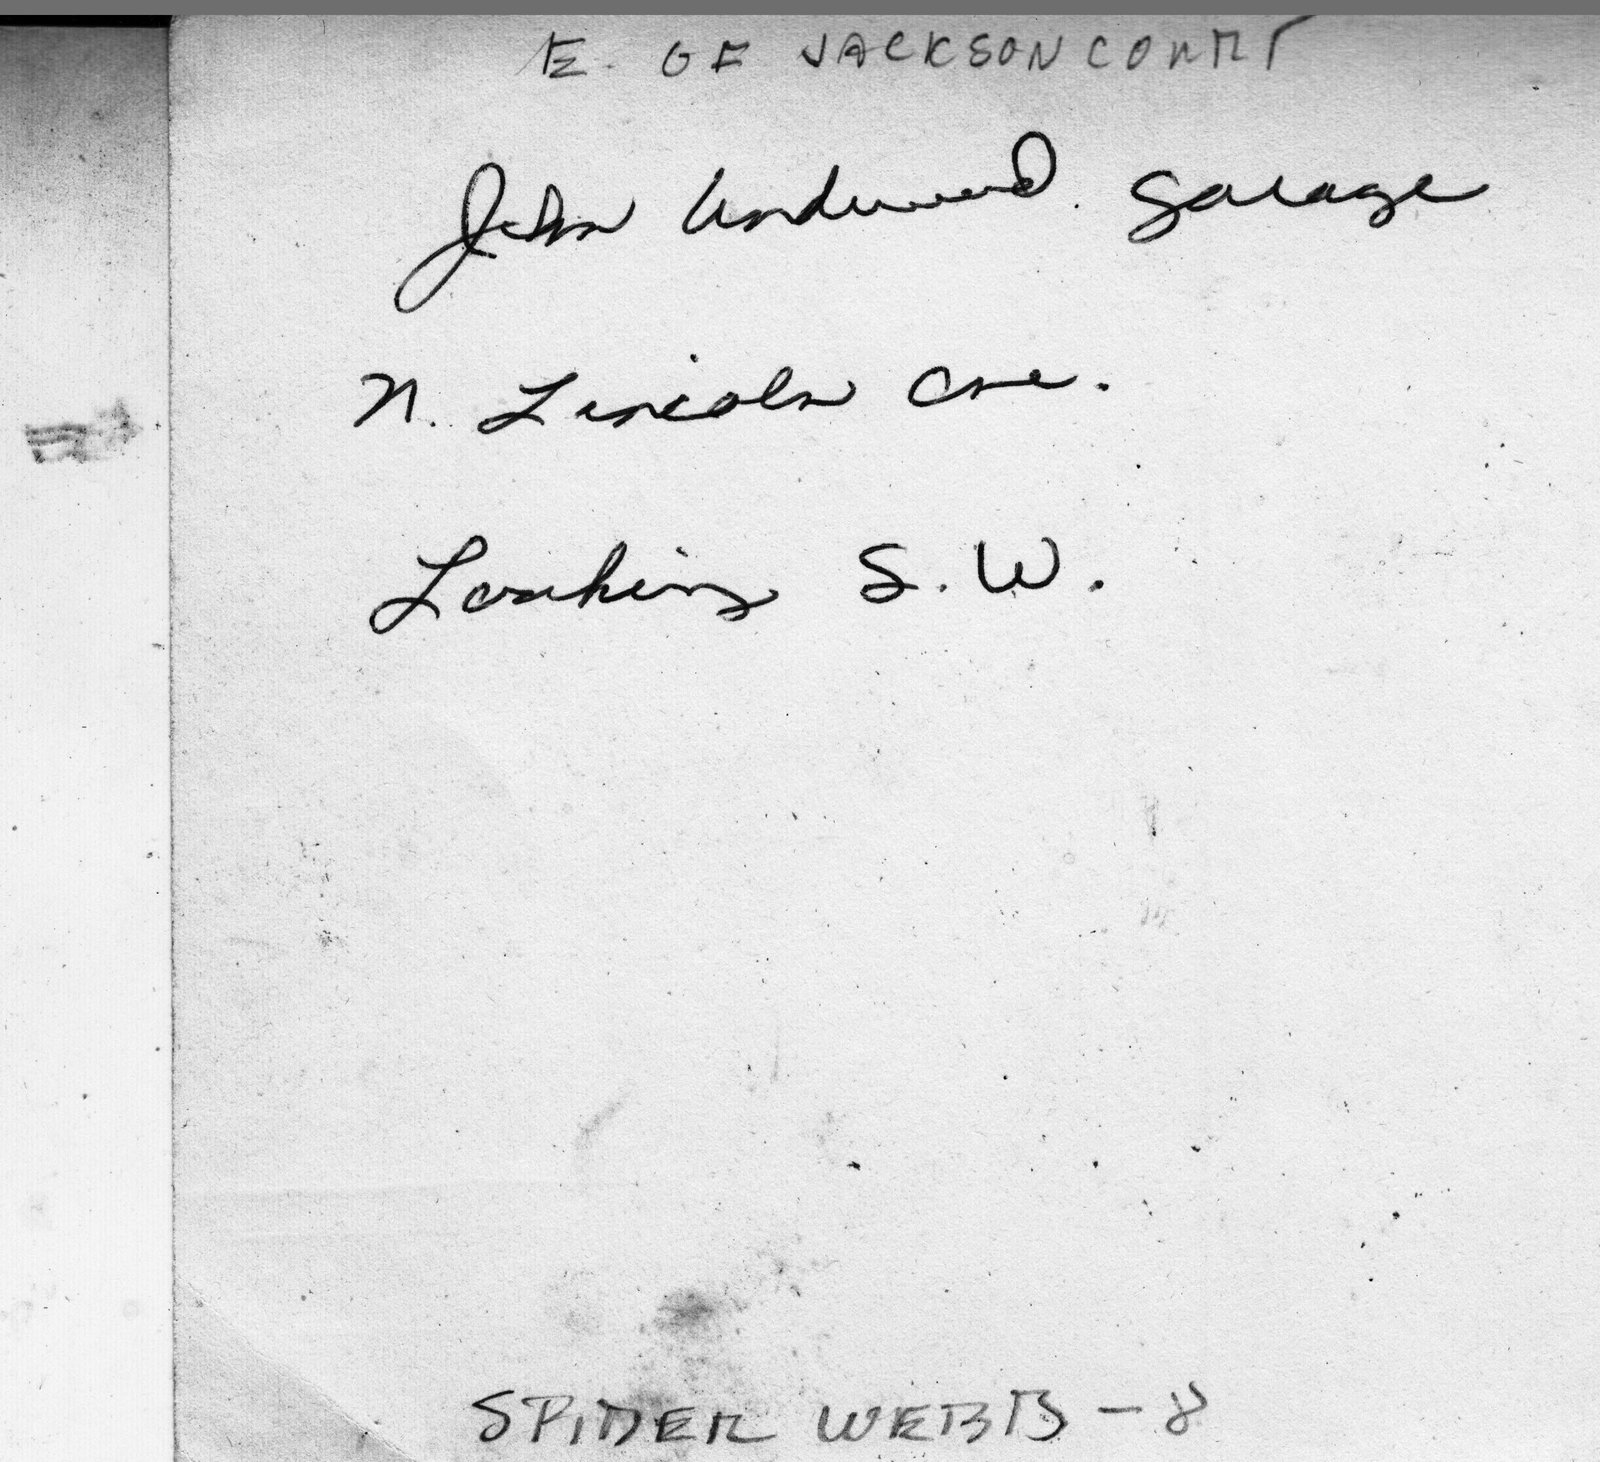 E. OF JACKSON COURT
John Underwood Garage
N. Lincoln Ave.
Looking S.W.
SPIDER WEBB - 8